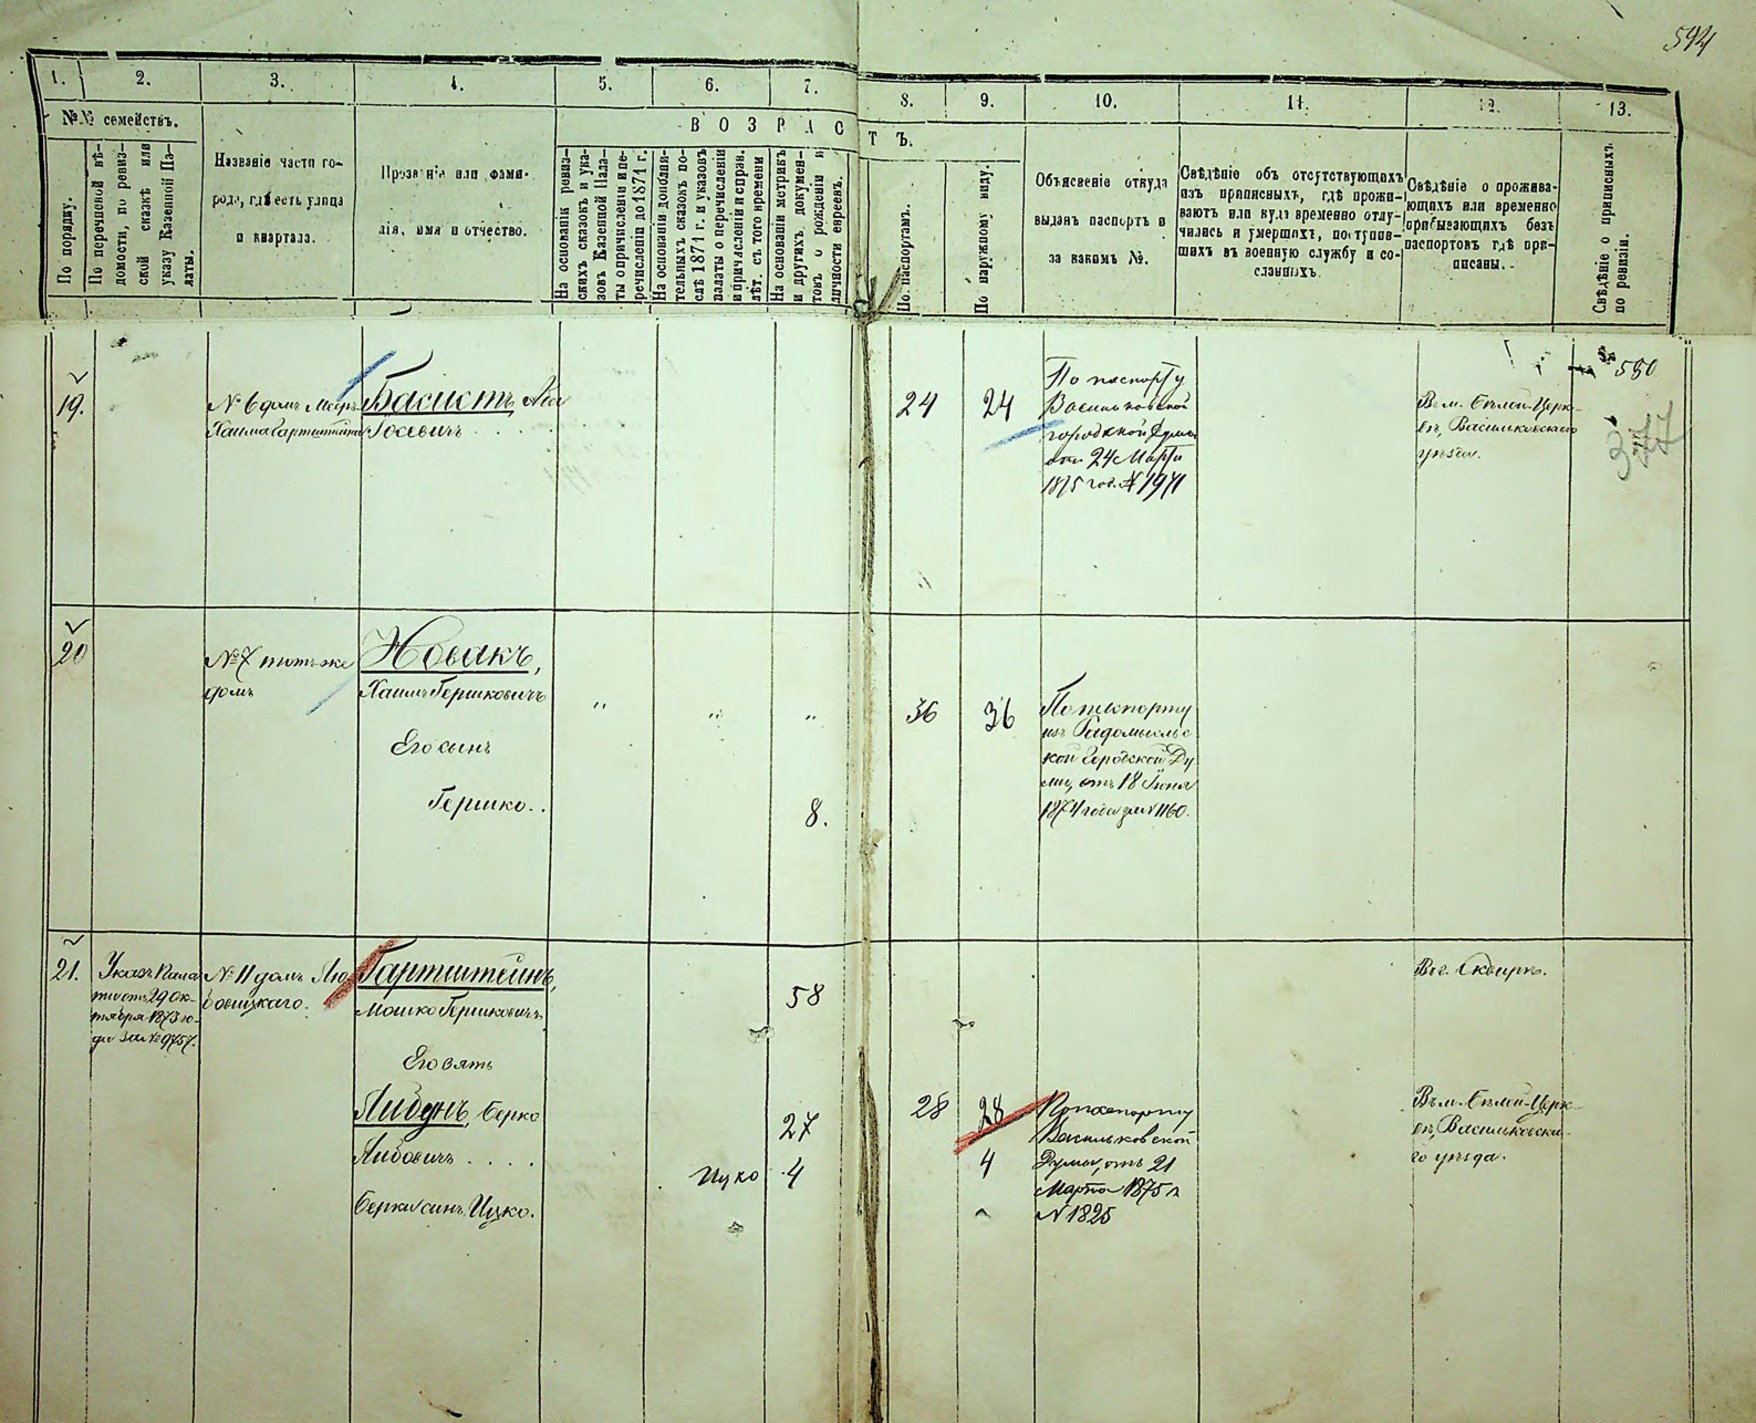 594
1. 2. 3. 4. 5. 6. 7. 8. 9. 10. 11. 12. 13.
№№ семействъ.
По порядку.
По перечневой вѣ-
домости, по ревиз-
ской сказкѣ или
указу Казенной Па-
латы.
Названіе части го-
рода, гдѣ есть улица
и квартала.
Прозваніе или фами-
лія, имя и отчество.
ВОЗРАСТЪ.
На основаніи ревиз-
скихъ сказокъ и ука-
зовъ Казенной Пала-
ты о причисленіи и пе-
речисленіи до 1871 г.
На основаніи дополни-
тельныхъ сказокъ по-
слѣ 1871 г. и указовъ
палаты о перечисленіи
и причисленіи и справ.
лѣт. съ того времени
На основаніи метрикъ
и другихъ докумен-
товъ о рожденіи и
личности евреевъ.
По паспортамъ.
По наружному виду.
Объясненіе откуда
выданъ паспортъ и
за какимъ №.
Свѣдѣніе объ отсутствующихъ
изъ приписныхъ, гдѣ прожи-
ваютъ или куда временно отлу-
чились и умершихъ, поступив-
шихъ въ военную службу и со-
сланныхъ.
Свѣдѣніе о прожива-
ющихъ или временно
прибывающихъ безъ
паспортовъ гдѣ при-
писаны.
Свѣдѣніе о приписныхъ
по ревизіи.
19.
№ 6 домъ Мееръ
Хаима Гартштейна
Басистъ, Аба
Іосевичъ
24
24
По паспорту
Васильковской
городской Думы
отъ 24 Марта
1875 год. № 1971
Въ м. Бѣлой-Церк-
ви, Васильковскаго
уѣзда.
580
377
20
№ 7 тотъ же
домъ
Новакъ,
Хаимъ Гершковичъ
Его сынъ
Гершко..
" " "
8.
36
36
По паспорту
изъ Радомысльс
кой Городской Ду
мы, отъ 18 Іюня
1874 года за № 1160.
21.
Указъ Пала
ты отъ 29 Ок-
тября 1873 го-
да за № 9757.
№ 11 домъ Лю
бовицкаго.
Гартштейнъ,
Мошко Гершковичъ
58
Въ г. Сквиръ.
Его зять
Либунъ, Берко
Либовичъ . . . .
27
28
28
По паспорту
Васильковской
Думы, отъ 21
Марта 1875 г
№ 1825
Въ м. Бѣлой-Церк-
ви, Васильковска-
го уѣзда.
Берки сынъ Ицко.
Ицко 4
4